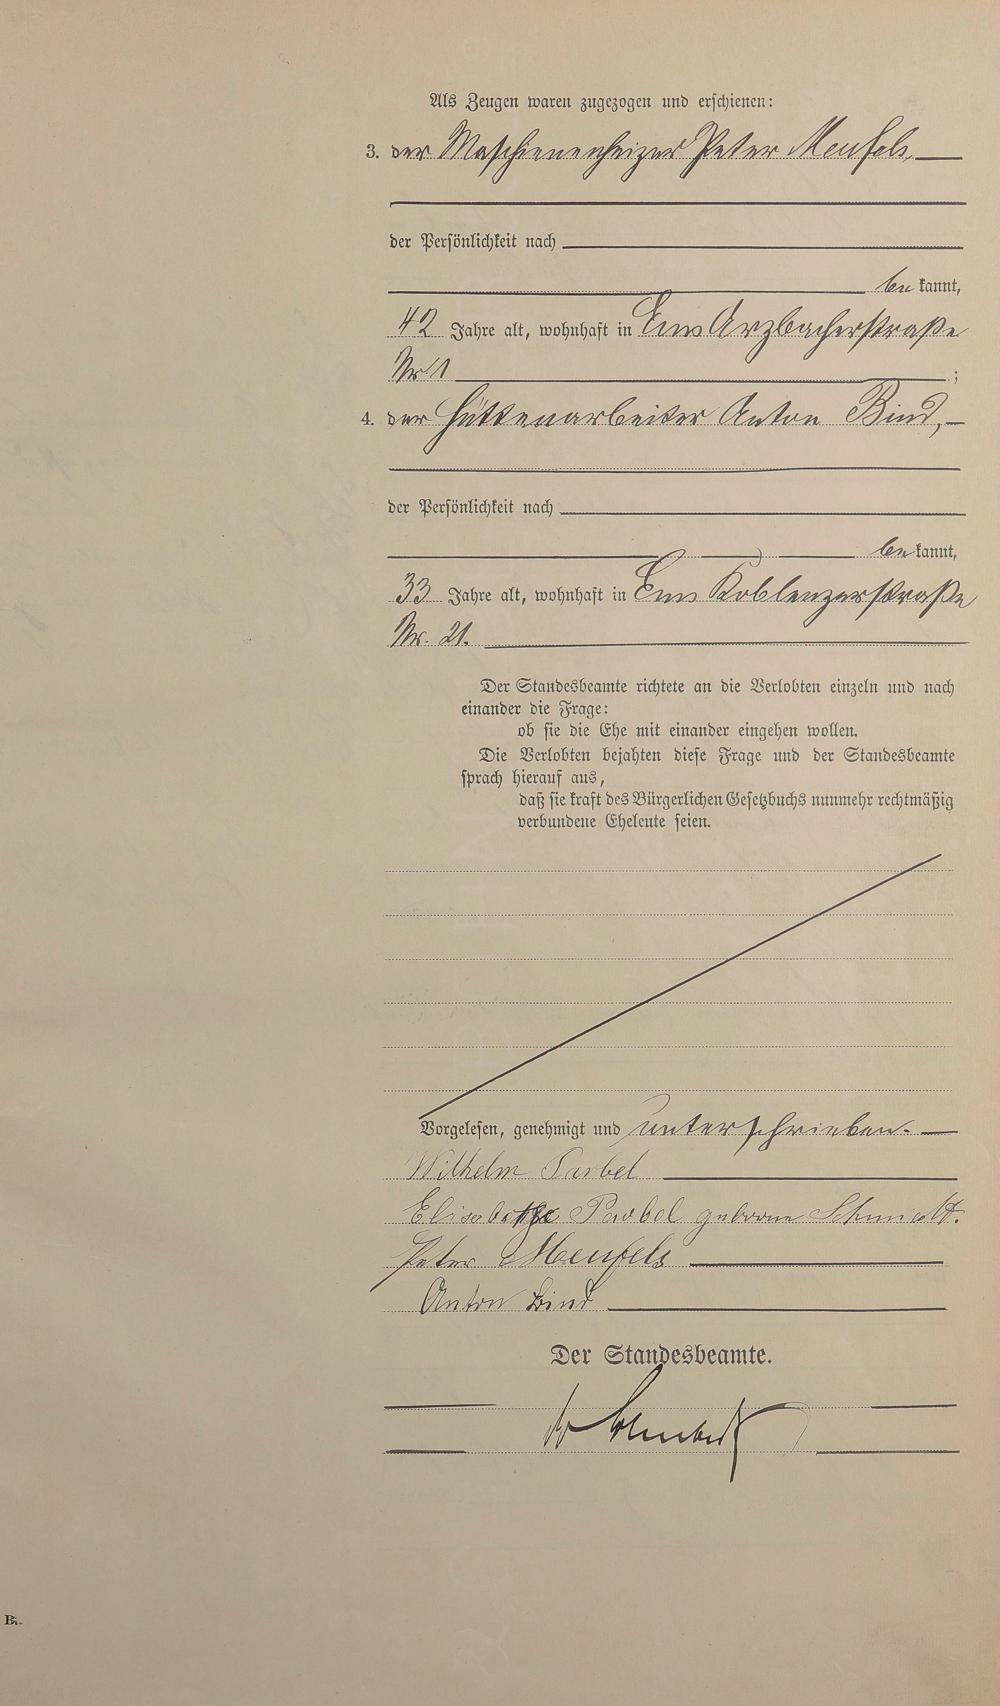 Als Zeugen waren zugezogen und erschienen:
3. der Maschienenheizer Peter Meufels,
der Persönlichkeit nach
be kannt,
42 Jahre alt, wohnhaft in Ems Arzbacherstraße
Nr. 1 ;
4. der Hüttenarbeiter Anton Bind,
der Persönlichkeit nach
be kannt,
33 Jahre alt, wohnhaft in Ems Koblenzerstraße
Nr. 21.
Der Standesbeamte richtete an die Verlobten einzeln und nach
einander die Frage:
ob sie die Ehe mit einander eingehen wollen.
Die Verlobten bejahten diese Frage und der Standesbeamte
sprach hierauf aus,
daß sie kraft des Bürgerlichen Gesetzbuchs nunmehr rechtmäßig
verbundene Eheleute seien.
Vorgelesen, genehmigt und unterschrieben.
Wilhelm
Elisabethe geborne Schmidt.
Peter Meufels
Anton Bind
Der Standesbeamte.
B.